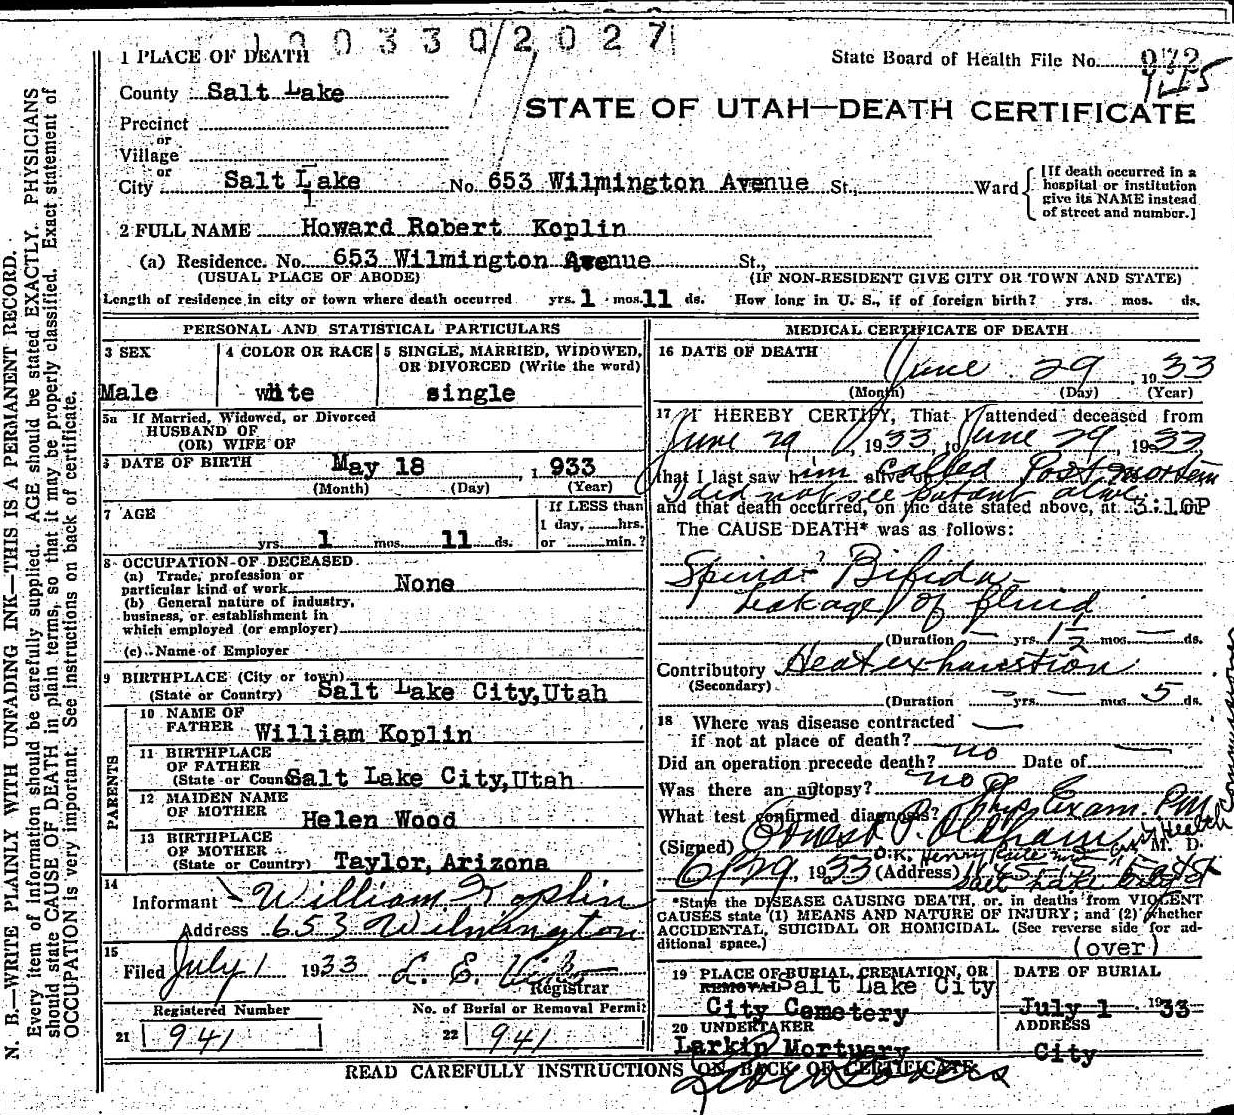 1 PLACE OF DEATH
100330/2027
State Board of Health File No. 972
1445
County Salt Lake
STATE OF UTAH—DEATH CERTIFICATE
Precinct
or
Village
or
City Salt Lake No. 653 Wilmington Avenue St., Ward
[If death occurred in a hospital or institution give its NAME instead of street and number.]
2 FULL NAME Howard Robert Koplin
(a) Residence. No. 653 Wilmington Avenue St.,
(USUAL PLACE OF ABODE) (IF NON-RESIDENT GIVE CITY OR TOWN AND STATE)
Length of residence in city or town where death occurred yrs. 1 mos. 11 ds. How long in U. S., if of foreign birth? yrs. mos. ds.
PERSONAL AND STATISTICAL PARTICULARS
3 SEX 4 COLOR OR RACE 5 SINGLE, MARRIED, WIDOWED,
OR DIVORCED (Write the word)
Male white single
5a If Married, Widowed, or Divorced
HUSBAND OF
(OR) WIFE OF
6 DATE OF BIRTH May 18 , 1933
(Month) (Day) (Year)
7 AGE If LESS than
1 day, hrs.
yrs. 1 mos. 11 ds. or min.?
8 OCCUPATION OF DECEASED
(a) Trade, profession or
particular kind of work None
(b) General nature of industry,
business, or establishment in
which employed (or employer)
(c) Name of Employer
9 BIRTHPLACE (City or town)
(State or Country) Salt Lake City, Utah
PARENTS
10 NAME OF
FATHER William Koplin
11 BIRTHPLACE
OF FATHER
(State or Coun Salt Lake City, Utah
12 MAIDEN NAME
OF MOTHER Helen Wood
13 BIRTHPLACE
OF MOTHER
(State or Country) Taylor, Arizona
14
Informant William Koplin
Address 653 Wilmington
15
Filed July 1 1933 L. E.
Registrar
Registered Number No. of Burial or Removal Permit
21 941 22 941
MEDICAL CERTIFICATE OF DEATH
16 DATE OF DEATH
June 29, 1933
(Month) (Day) (Year)
17 I HEREBY CERTIFY, That I attended deceased from
June 29, 1933, to June 29, 1933
that I last saw him alive on called Post mortem
I did not see patient alive
and that death occurred, on the date stated above, at 3:10P
The CAUSE DEATH* was as follows:
Spina Bifida
Leakage of fluid
(Duration — yrs. 1½ mos. — ds.
Contributory Heat exhaustion
(Secondary)
(Duration — yrs. — mos. 5 ds.
18 Where was disease contracted
if not at place of death? —
Did an operation precede death? no Date of —
Was there an autopsy? no
What test confirmed diagnosis? Phys. Exam. P.M.
(Signed) Ernest P. Oldham M. D.
O.K. Henry Health Commissioner
6/29, 1933 (Address)
Salt Lake City
*State the DISEASE CAUSING DEATH, or, in deaths from VIOLENT
CAUSES state (1) MEANS AND NATURE OF INJURY; and (2) whether
ACCIDENTAL, SUICIDAL OR HOMICIDAL. (See reverse side for ad-
ditional space.)
(over)
19 PLACE OF BURIAL, CREMATION, OR DATE OF BURIAL
REMOVAL Salt Lake City
City Cemetery July 1 1933
20 UNDERTAKER ADDRESS
Larkin Mortuary City
READ CAREFULLY INSTRUCTIONS ON BACK OF CERTIFICATE
N. B.—WRITE PLAINLY WITH UNFADING INK—THIS IS A PERMANENT RECORD.
Every item of information should be carefully supplied. AGE should be stated EXACTLY. PHYSICIANS
should state CAUSE OF DEATH in plain terms, so that it may be properly classified. Exact statement of
OCCUPATION is very important. See instructions on back of certificate.